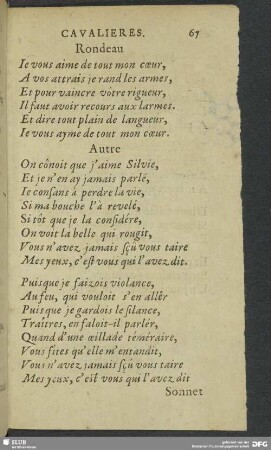 CAVALIERES. 67
Rondeau
Ie vous aime de tout mon cœur,
A vos attrais je rand les armes,
Et pour vaincre vòtre rigueur,
Il faut avoir recours aux larmes.
Et dire tout plain de langueur,
Ie vous ayme de tout mon cœur.
Autre
On cônoit que j'aime Silvie,
Et je n'en ay jamais parlé,
Ie consans à perdre la vie,
Si ma bouche l'à revelé,
Si tôt que je la considére,
On voit la belle qui rougit,
Vous n'avez jamais sçû vous taire
Mes yeux, c'est vous qui l'avez dit.
Puisque je faizois violance,
Au feu, qui vouloit s'en allêr
Puis que je gardois le silance,
Traîtres, en faloit-il parlér,
Quand d'une œillade téméraire,
Vous fites qu'elle m'entandit,
Vous n'avez jamais sçû vous taire
Mes yeux, c'est vous qui l'avez dit
Sonnet
SLUB
DFG